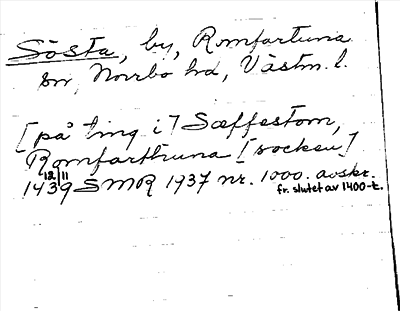 Sösta, by, Romfartuna
sn, Norrbo hd, Västm. l.
[på ting i] Sæffestom,
Romfarthuna [socken]
12/11
1439 SMR 1937 nr. 1000. avskr.
fr. slutet av 1400-t.